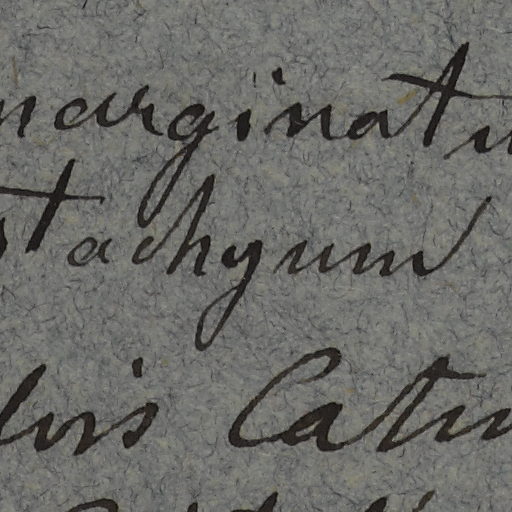 marginatu
stachyum
lvis Catu